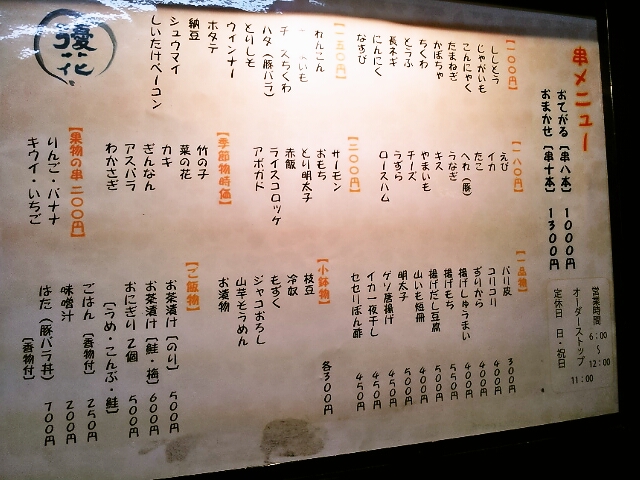 串メニュー
おてがる【串八本】 1000円
おまかせ【串十本】 1300円
営業時間 6:00〜12:00
オーダーストップ 11:00
定休日 日・祝日
【一〇〇円】
ししとう
じゃがいも
こんにゃく
たまねぎ
かぼちゃ
ちくわ
とうふ
長ネギ
にんにく
なすび
【一五〇円】
れんこん
チ スちくわ
ハタ(豚バラ)
とりしそ
ウィンナー
ホタテ
納豆
シュウマイ
しいたけベーコン
【一八〇円】
えび
イカ
たこ
へれ(豚)
うなぎ
キス
やまいも
チーズ
うずら
ロースハム
【二〇〇円】
サーモン
おもち
とり明太子
赤飯
ライスコロッケ
アボガド
【季節物時価】
竹の子
菜の花
カキ
ぎんなん
アスパラ
わかさぎ
【果物の串 二〇〇円】
りんご・バナナ
キウイ・いちご
【一品物】
バリ皮 300円
コリコリ 400円
ずりから 400円
揚げしゅうまい 400円
揚げもち 550円
揚げだし豆腐 500円
山いも短冊 400円
明太子 450円
ゲソ唐揚げ 450円
イカ一夜干し 450円
セセリぽん酢 450円
【小鉢物】 各300円
枝豆
冷奴
もずく
ジャコおろし
山芋そうめん
お漬物
【ご飯物】
お茶漬け【のり】 500円
お茶漬け【鮭・梅】 600円
おにぎり2個 500円
【うめ・こんぶ・鮭】
ごはん【香物付】 250円
味噌汁 200円
はた(豚バラ丼)【香物付】 700円